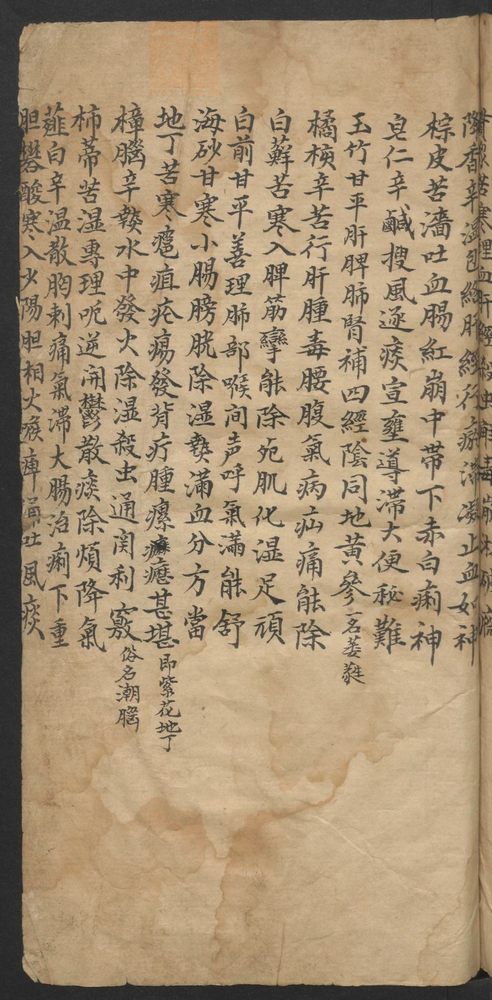 苦寒理血肝經殺虫
降香辛温包絡肝經行瘀滞凝止血如神
棕皮苦濇吐血腸紅崩中帶下赤白痢神
皂仁辛鹹搜風逐痰宣壅導滞大便秘難
玉竹甘平肝脾肺腎補四經陰同地黄參一名萎蕤
橘核辛苦行肝腫毒腰腹氣病疝痛能除
白蘚苦寒入脾筋攣能除死肌化湿足頑
白前甘平善理肺部喉间声呼氣滿能舒
海砂甘寒小腸膀胱除湿熱滿血分方當
地丁苦寒癰疽疮瘍發背疔腫瘰癧甚堪即紫花地丁
樟腦辛熱水中發火除湿殺虫通関利竅俗名潮腦
柿蒂苦湿專理呃逆開鬱散痰除煩降氣
薤白辛温散胸刺痛氣滞大腸治痢下重
胆礬酸寒入少陽胆相火喉痺涌吐風痰